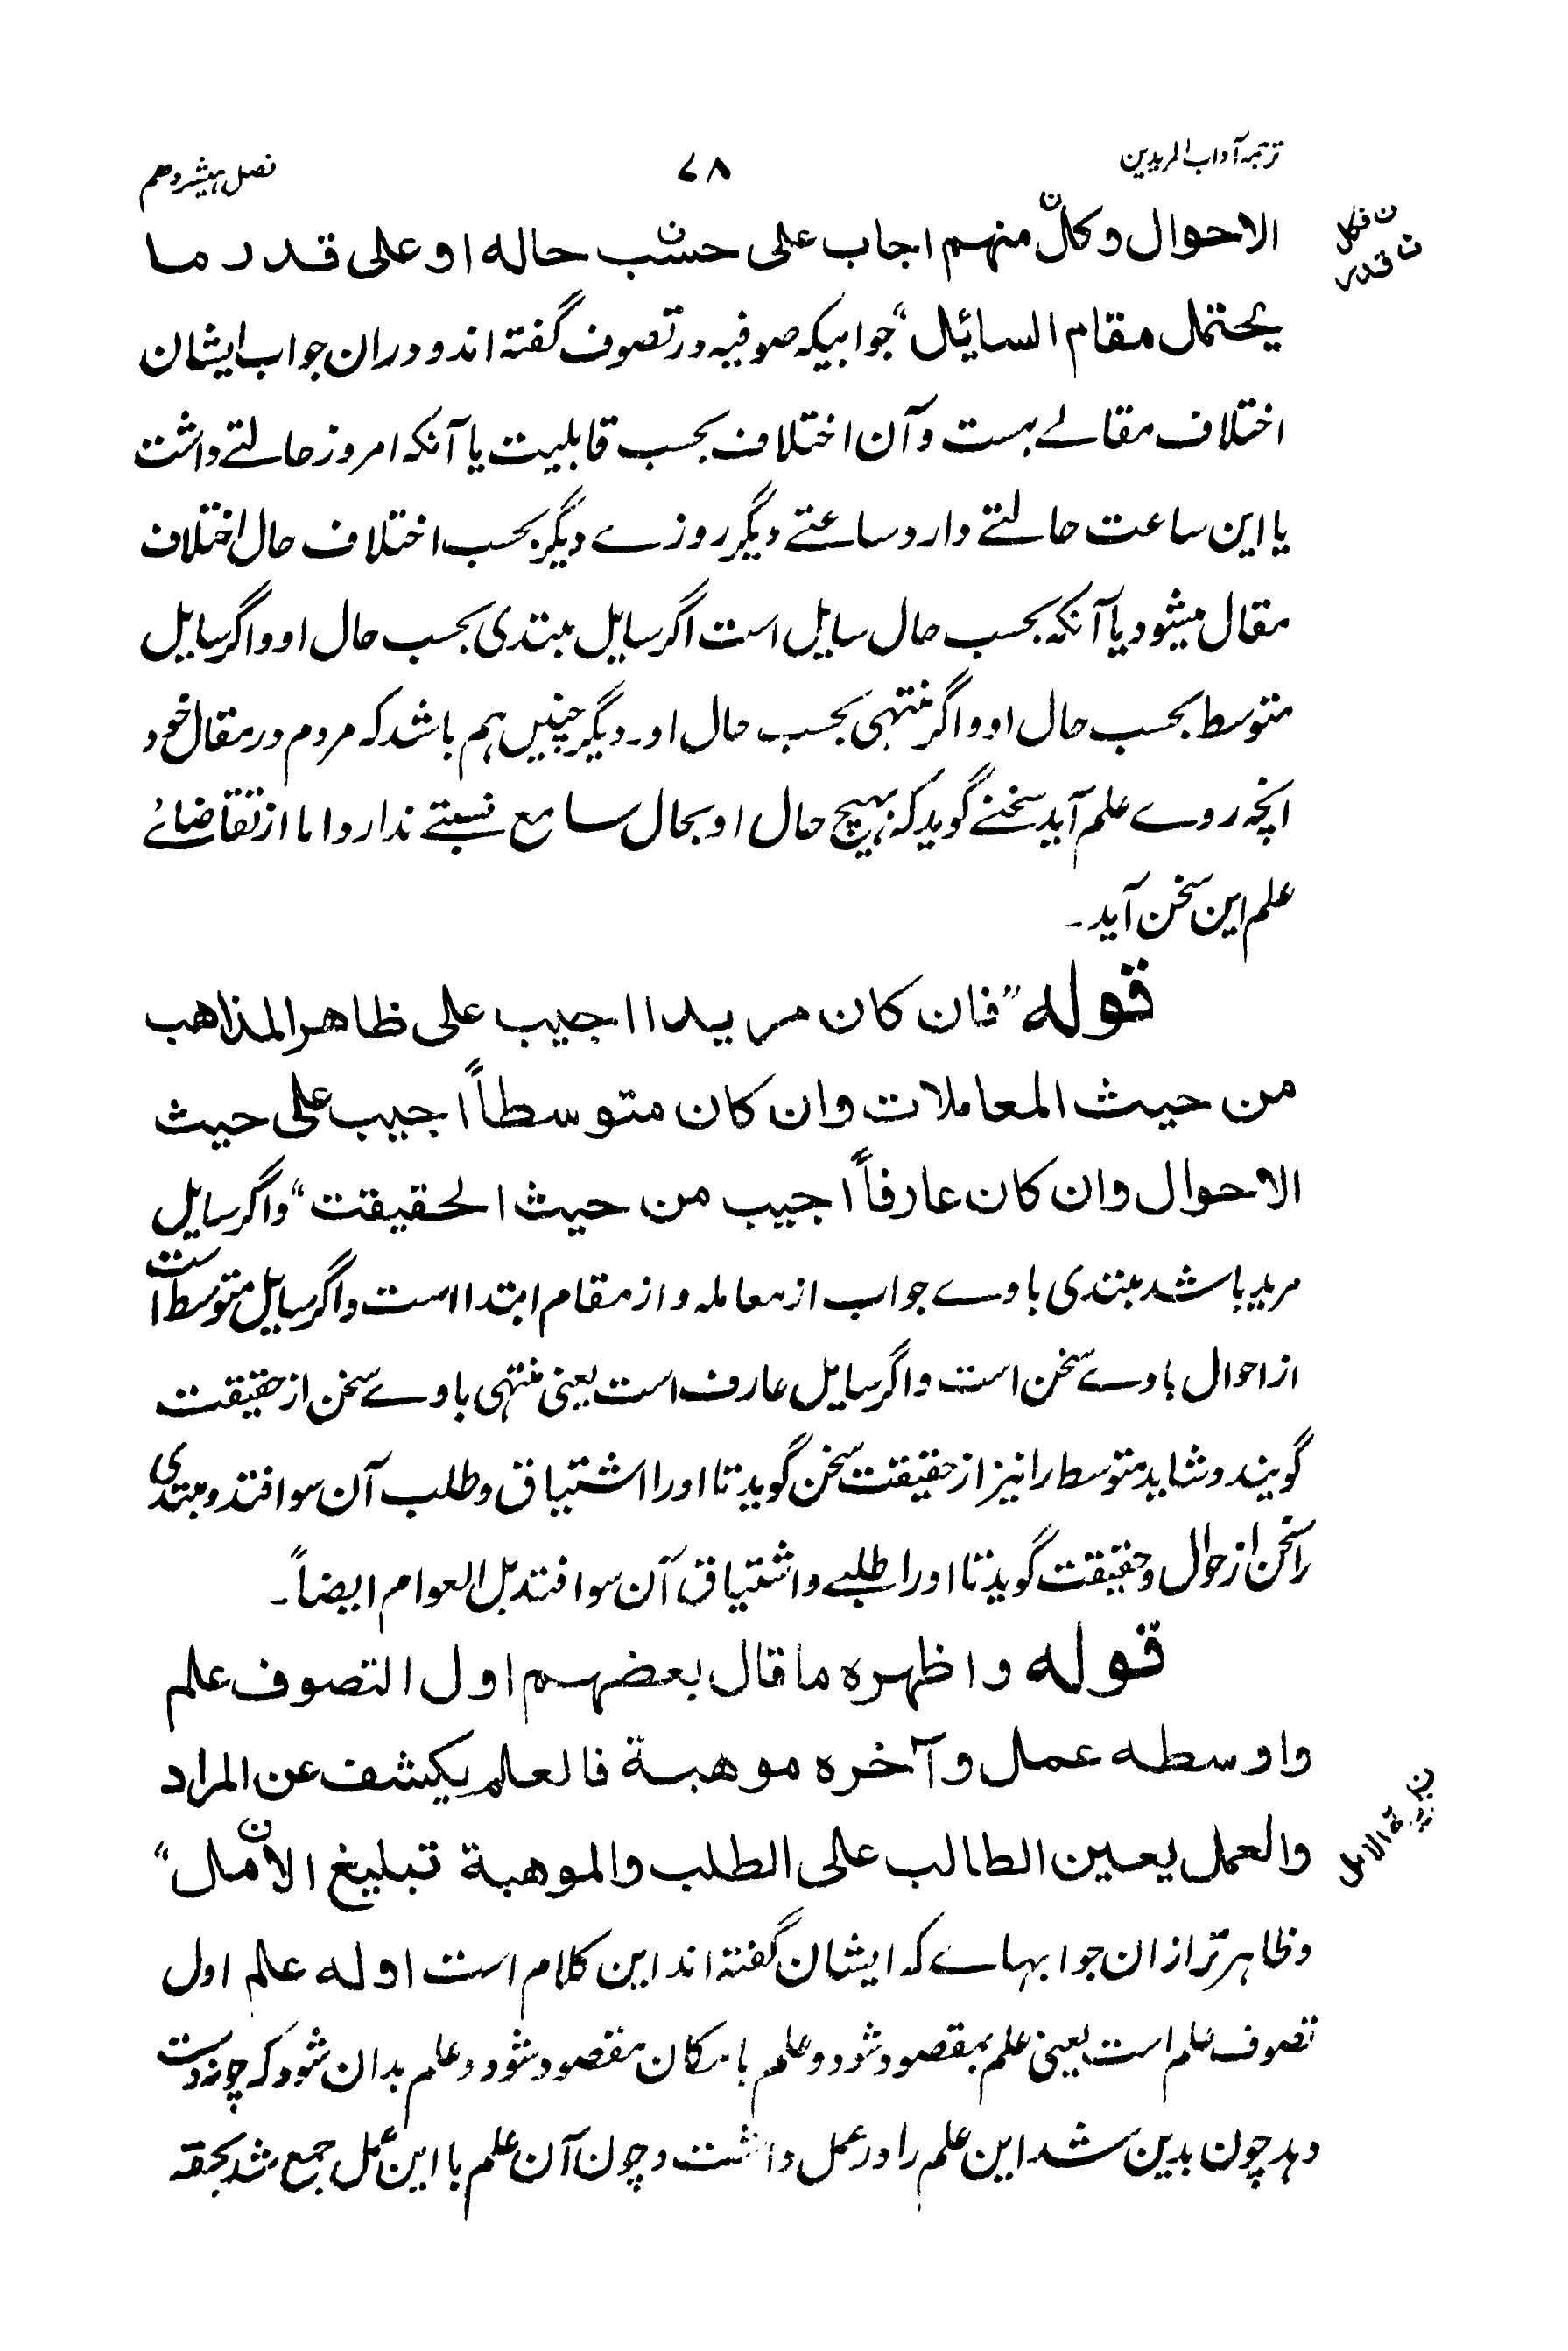 ترجمہ آداب المریدین
۷۸
فصل ہیشردھم
الاحوال وکلّ منہم اجاب علی حسب حالہ او علی قدر ما
ن فکل
ن قدر
یحتمل مقام السایٔل“ جوابیکہ صوفیہ در تصوف گفتہ اند ودران جواب ایشان
اختلاف مقالے ہست وآن اختلاف بحسب قابلیت یا آنکہ امروز حالتے داشت
یا این ساعت حالتے دارد ساعتے دیگر روزے دیگر بحسب اختلاف حال اختلاف
مقال میشود یا آنکہ بحسب حال سایل است اگر سایل مبتدی بحسب حال او واگر سایل
متوسط بحسب حال او واگر منتہی بحسب حال او۔ دیگر چنیں ہم باشد کہ مردم در مقال خود
انچہ روے علم آید سخنے گوید کہ بہیچ حال او بحال سامع نسبتے ندارد اما از تقاضائے
علم این سخن آید۔
قولہ ”فان کان مریدا اجیب علی ظاھر المذاھب
من حیث المعاملات وان کان متوسطاً اجیب علی حیث
الاحوال وان کان عارفاً اجیب من حیث الحقیقت“ واگر سایل
مرید باشد مبتدی باوے جواب از معاملہ واز مقام ابتدا است واگر سایل متوسط است
از احوال باوے سخن است واگر سایل عارف است یعنی منتہی باوے سخن از حقیقت
گویند وشاید متوسط را نیز از حقیقت سخن گوید تا اورا اشتیاق وطلب آن سو افتد ومبتدی
را سخن از حوال وحقیقت گوید تا اورا طلبے واشتیاق آن سو افتد بل العوام ایضاً۔
قولہ واظہرہ ما قال بعضہم اول التصوف علم
واوسطہ عمل وآخرہ موھبۃ فالعلم یکشف عن المراد
والعمل یعین الطالب علی الطلب والموھبۃ تبلیغ الامٰل“
الامل
وظاہرتر ازان جوابہاے کہ ایشان گفتہ اند این کلام است اولہ علم اول
تصوف علم است یعنی علم بمقصود شود وعلم بامکان مقصود شود وعلم بدان شود کہ چونہ دست
دہد چون بدین شد این علم را در عمل داشت وچون آن علم با این عمل جمع شد بحقہ